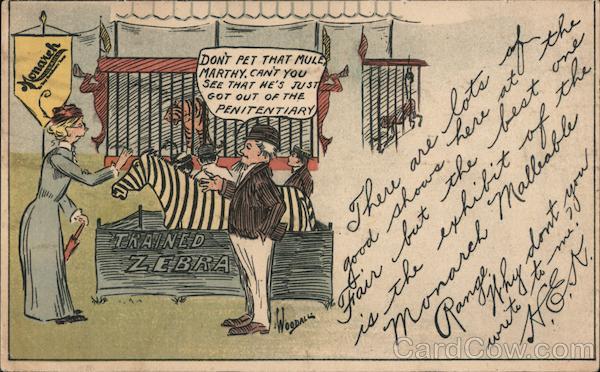 Monarch
DON'T PET THAT MULE
MARTHY, CAN'T YOU
SEE THAT HE'S JUST
GOT OUT OF THE
PENITENTIARY
TRAINED
ZEBRA
Woodill
There are lots of
good shows here at the
Fair but the best one
is the exhibit of the
Monarch Malleable
Range. Why dont you
write to me?
H.E.K.
CardCow.com